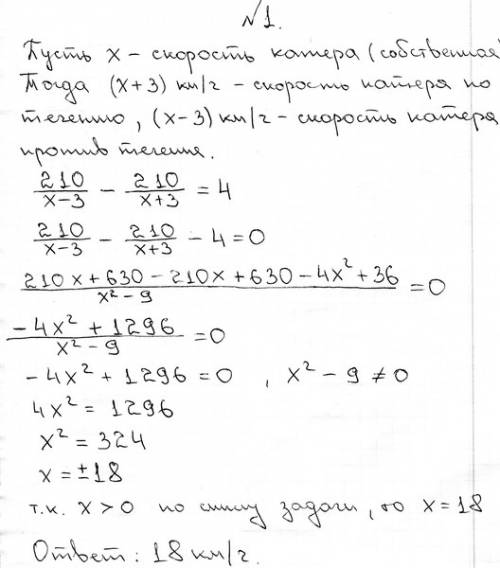 №1.
Пусть x – скорость катера (собственная)
Тогда (x+3) км/ч – скорость катера по
течению, (x-3) км/ч – скорость катера
против течения.
210/(x-3) - 210/(x+3) = 4
210/(x-3) - 210/(x+3) - 4 = 0
(210x + 630 - 210x + 630 - 4x² + 36)/(x² - 9) = 0
(-4x² + 1296)/(x² - 9) = 0
-4x² + 1296 = 0 , x² - 9 ≠ 0
4x² = 1296
x² = 324
x = ±18
т.к. x > 0 по смыслу задачи, то x = 18
Ответ: 18 км/ч.